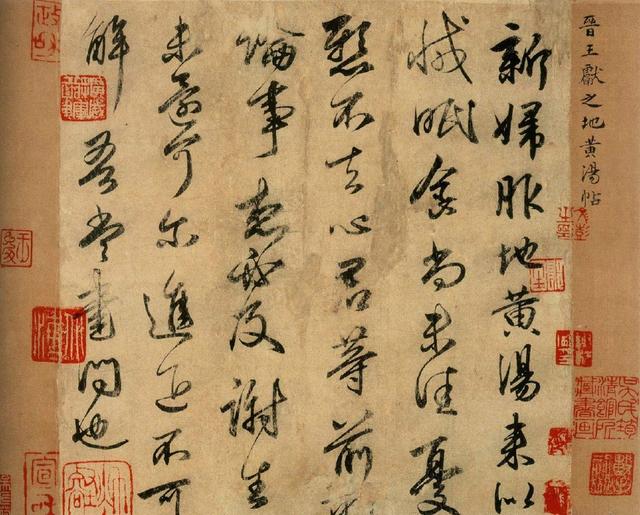 晉王獻之地黄湯帖
新婦服地黄湯來似
減眠食尚未佳憂
懸不去心君等前
論事想必及謝生
未還可爾進退不可
解吾當書問也
政和